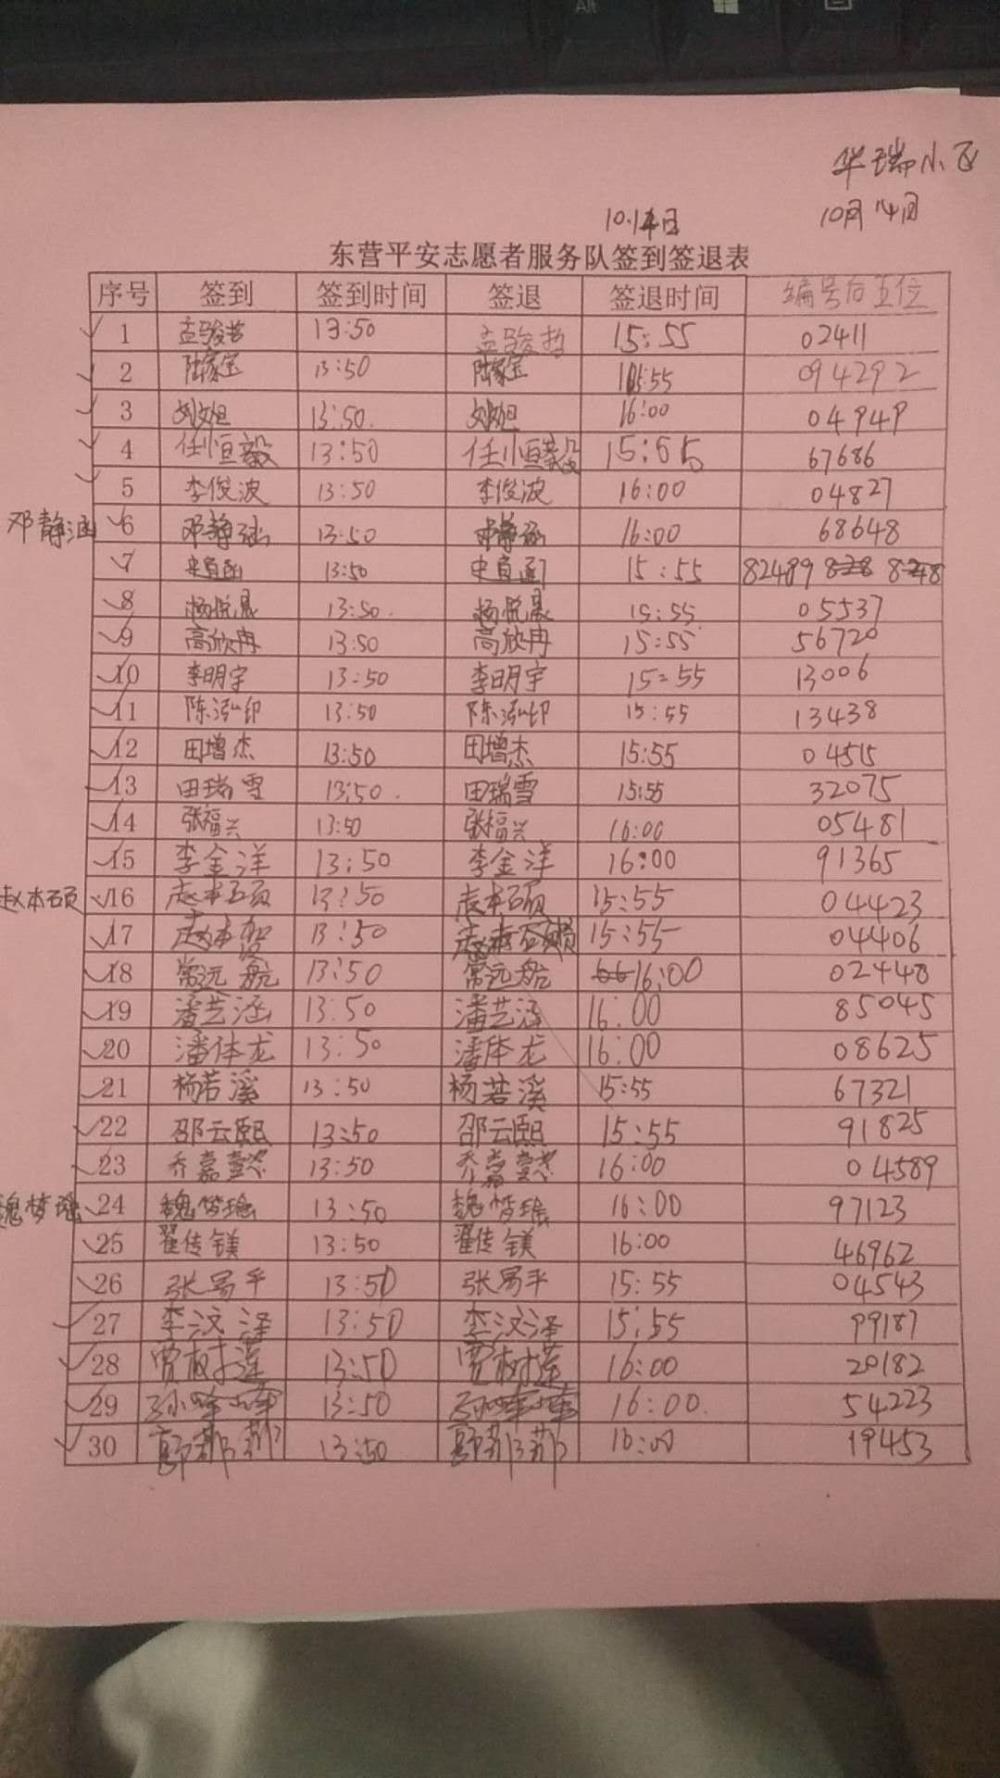 华瑞小区
10月14日
10.14日
东营平安志愿者服务队签到签退表
序号 签到 签到时间 签退 签退时间 编号后五位
1 孟骏哲 13:50 孟骏哲 15:55 02411
2 陆家宝 13:50 陆家宝 15:55 094292
3 13:50. 16:00 04949
4 任恒毅 13:50 任恒毅 15:55 67686
5 李俊波 13:50 李俊波 16:00 04827
邓静涵 6 邓静涵 13:50 邓静涵 16:00 68648
7 13:50 15:55 82489
8 杨悦晨 13:50. 杨悦晨 15:55 05537
9 高欣冉 13:50 高欣冉 15:55 56720
10 李明宇 13:50 李明宇 15:55 13006
11 陈泓印 13:50 陈泓印 15:55 13438
12 田增杰 13:50 田增杰 15:55 04515
13 田瑞雪 13:50. 田瑞雪 15:55 32075
14 张福兴 13:50 张福兴 16:00 05481
15 李金洋 13:50 李金洋 16:00 91365
赵本硕 16 赵本硕 13:50 赵本硕 15:55 04423
17 13:50 15:55 04406
18 常远航 13:50 常远航 16:00 02448
19 潘艺涵 13:50 潘艺涵 16:00 85045
20 潘体龙 13:50 潘体龙 16:00 08625
21 杨若溪 13:50 杨若溪 15:55 67321
22 邵云熙 13:50 邵云熙 15:55 91825
23 乔嘉懿 13:50 乔嘉懿 16:00 04589
魏梦瑶 24 魏梦瑶 13:50 魏梦瑶 16:00 97123
25 翟传镁 13:50 翟传镁 16:00 46962
26 张易平 13:50 张易平 15:55 04543
27 李汶泽 13:50 李汶泽 15:55 99187
28 贾树莲 13:50 贾树莲 16:00 20182
29 13:50 16:00. 54223
30 13:50 16:00 19453